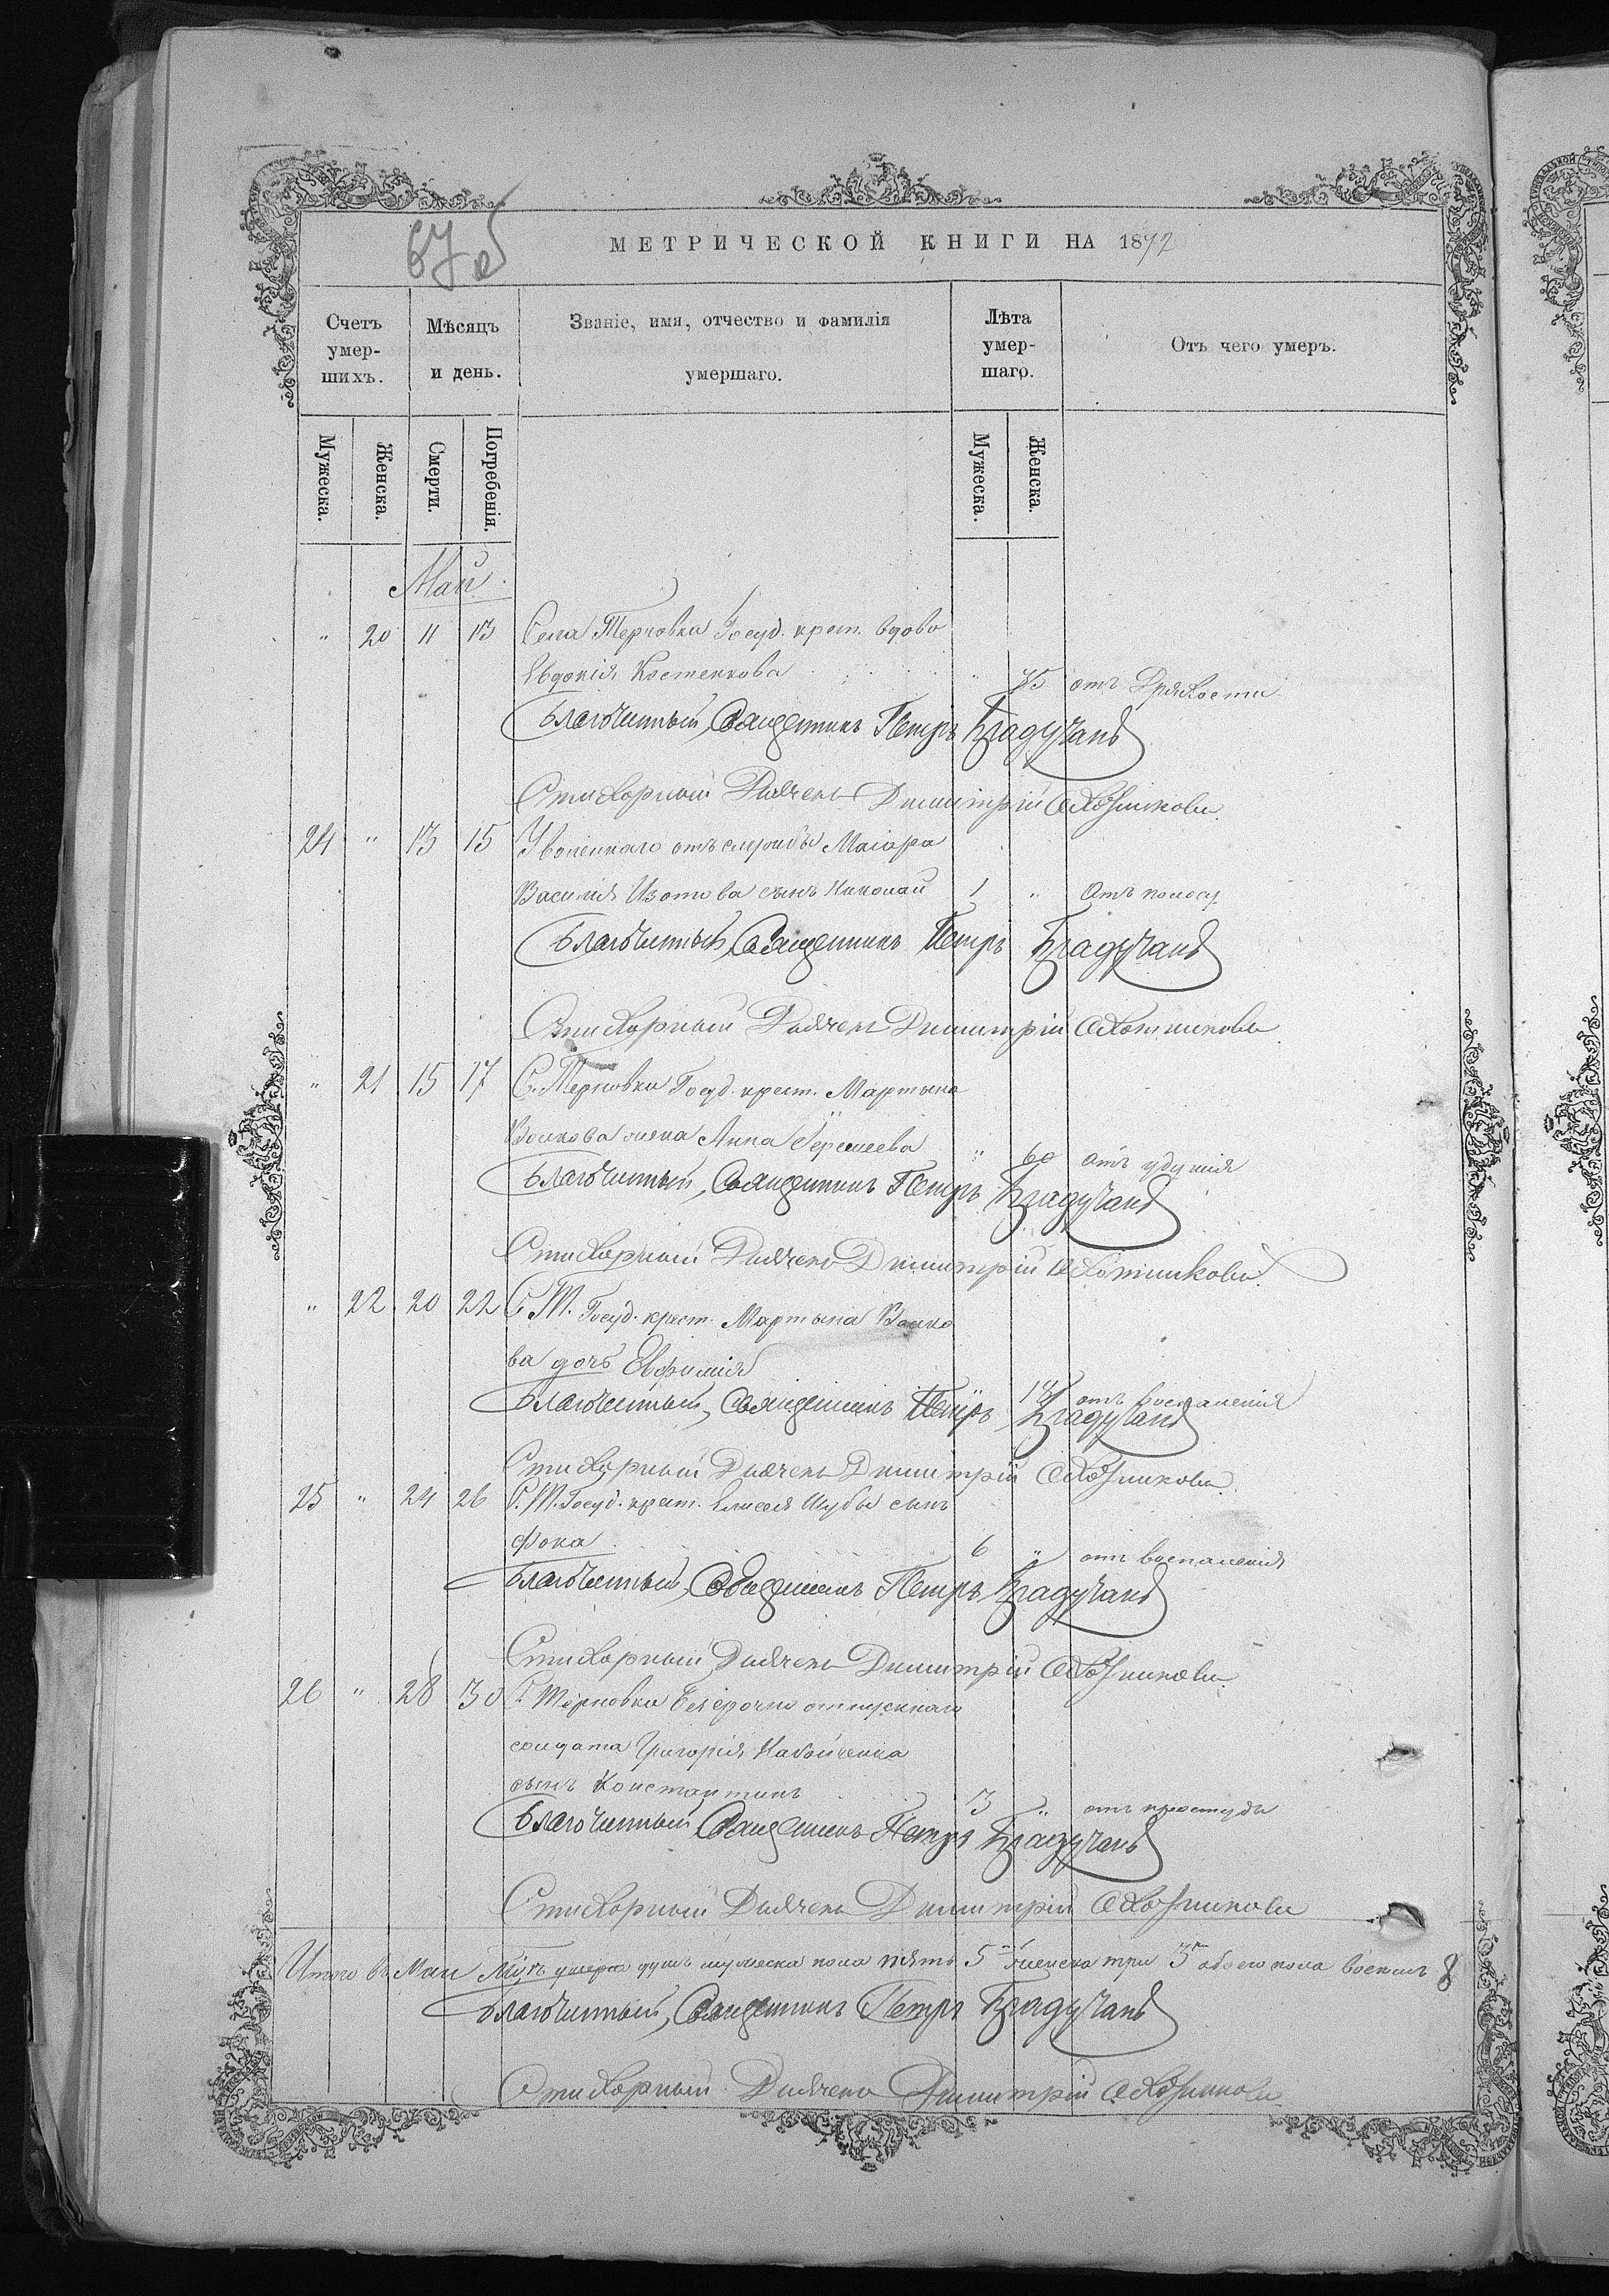 67 об
МЕТРИЧЕСКОЙ КНИГИ НА 1872
Счетъ умер-шихъ.
Мѣсяцъ и день.
Званіе, имя, отчество и фамилія умершаго.
Лѣта умер-шаго.
Отъ чего умеръ.
Мужеска. Женска. Смерти. Погребенія. Мужеска. Женска.
Май.
" 20 11 13 Села Терновки Госуд. крест. вдова
Евдокія Костенкова " 75 отъ Дряхлости
Благочинный, Священникъ Петръ
Стихорный Дьячекъ Димитрій Охотниковъ.
24 " 13 15 Уволеннаго отъ службы Маіора
Василія Изотова сынъ Николай 1 " Отъ поносу
Благочинный, Священникъ Петръ
Стихорный Дьячекъ Димитрій Охотниковъ
" 21 15 17 С. Терновки Госуд. крест. Мартына
Волкова жена Анна " 60 отъ удушія
Благочинный, Священникъ Петръ
Стихорный Дьячекъ Димитрій Охотниковъ.
" 22 20 22 С. Т. Госуд. крест. Мартына Волко
ва дочь Евфимія " отъ воспаленія
Благочинный, Священникъ Петръ
Стихорный Дьячекъ Димитрій Охотниковъ.
25 " 24 26 С. Т. Госуд. крест. Елисея Шубы сынъ
Фока 6 " отъ воспаленія
Благочинный, Священникъ Петръ
Стихорный Дьячекъ Димитрій Охотниковъ.
26 " 28 30 С. Терновки безсрочно отпускнаго
солдата Григорія
сынъ Константинъ 3 " отъ простуды
Благочинный, Священникъ Петръ
Стихорный Дьячекъ Димитрій Охотниковъ
Итого въ Маи м-цѣ умерло душъ мужеска пола пять 5 женска три 3 обоего пола восемь 8
Благочинный, Священникъ Петръ
Стихорный Дьячекъ Димитрій Охотниковъ